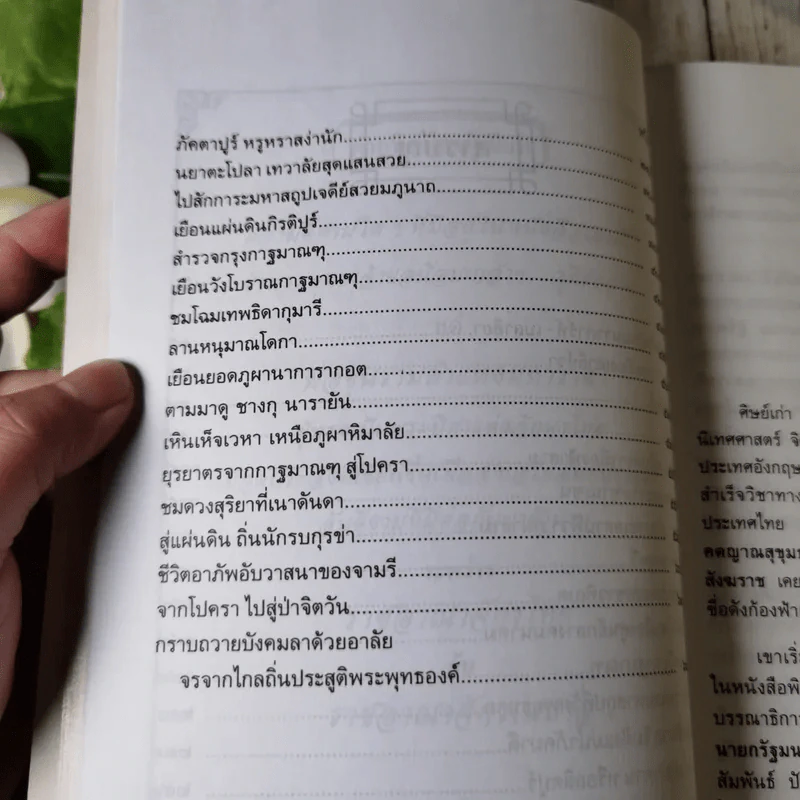 ภัคตาปูร์ หรูหราสง่านัก
นยาตะโปลา เทวาลัยสุดแสนสวย
ไปสักการะมหาสถูปเจดีย์สวยมภูนาถ
เยือนแผ่นดินกิรติปูร์
สำรวจกรุงกาฐมาณฑุ
เยือนวังโบราณกาฐมาณฑุ
ชมโฉมเทพธิดากุมารี
ลานหนุมาณโดกา
เยือนยอดภูผานาการากอต
ตามมาดู ชางกุ นารายัน
เหินเห็จเวหา เหนือภูผาหิมาลัย
ยุรยาตรจากกาฐมาณฑุ สู่โปครา
ชมดวงสุริยาที่เนาดันดา
สู่แผ่นดิน ถิ่นนักรบกุรข่า
ชีวิตอาภัพอับวาสนาของจามรี
จากโปครา ไปสู่ป่าจิตวัน
กราบถวายบังคมลาด้วยอาลัย
จรจากไกลถิ่นประสูติพระพุทธองค์
ศิษย์เก่า
นิเทศศาสตร์
ประเทศอังกฤษ
สำเร็จวิชาทาง
ประเทศไทย
คตญาณสุขุม
สังฆราช เคย
ชื่อดังก้องฟ้า
เขาเริ่
ในหนังสือพิ
บรรณาธิการ
นายกรัฐมน
สัมพันธ์